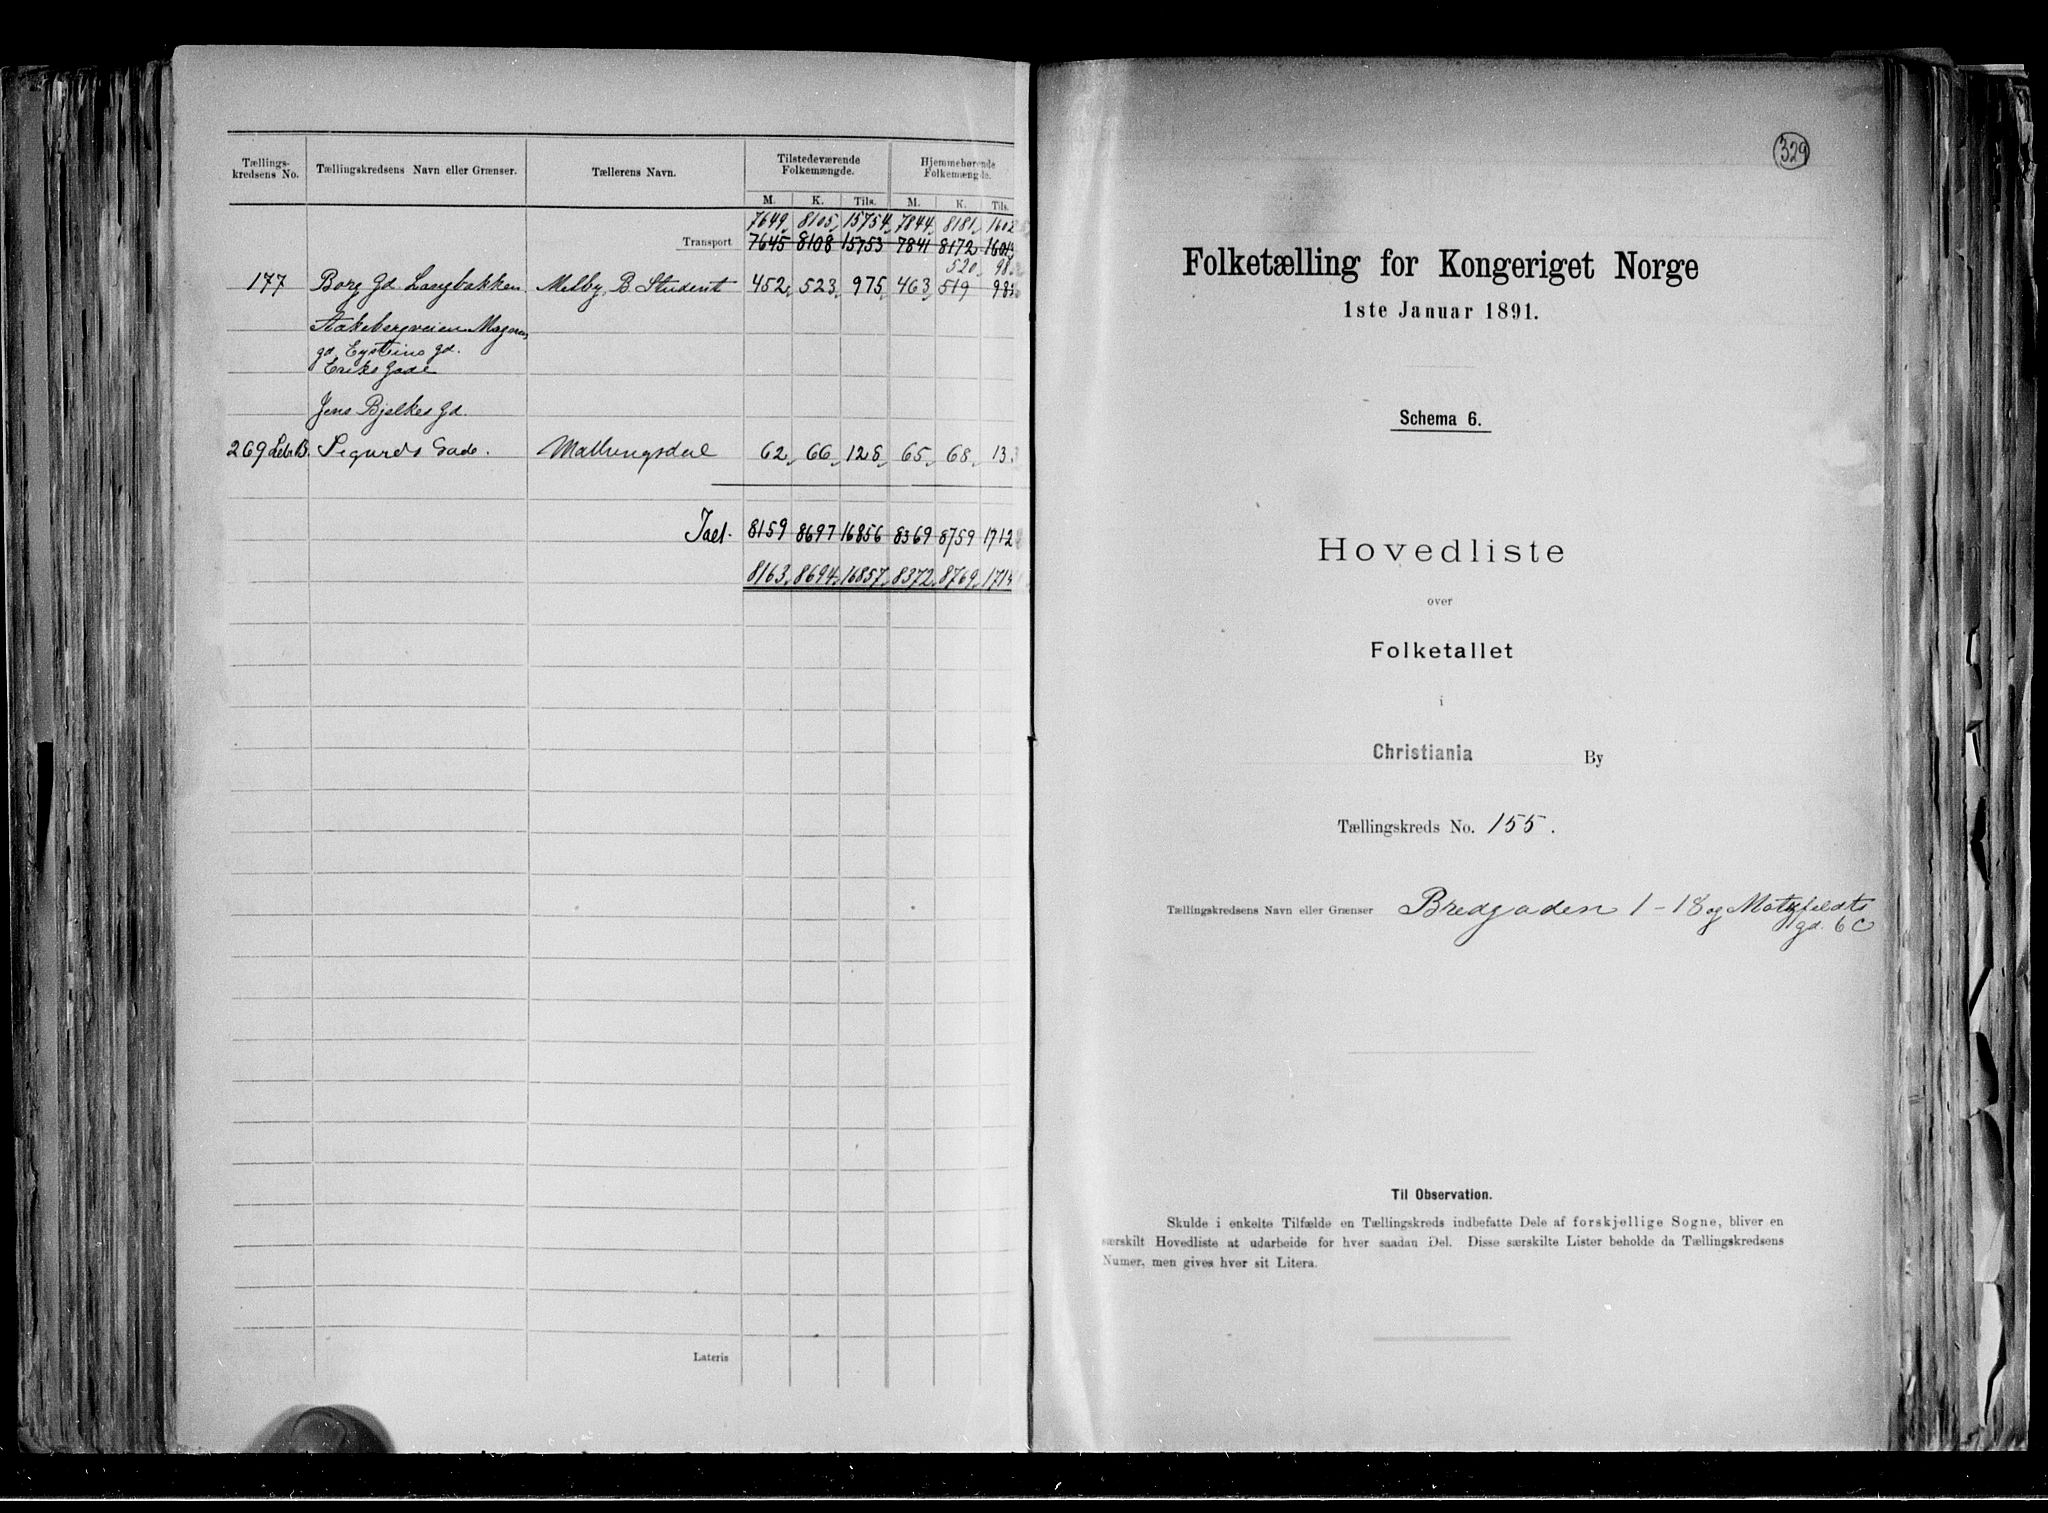 Tællings-
kredsens No.
Tællingskredsens Navn eller Grænser.
Tællerens Navn.
Tilstedeværende
Folkemængde.
Hjemmehørende
Folkemængde.
M. K. Tils. M. K. Tils.
7649 8105 15754 7844 8181 1602
Transport 7645 8108 15753 7841 8172 1601
520 98
177 Borg Gd Langbakken Melby, B. Student 452 523 975 463 519 98
Aakebergveien Magnus
gd. Eysteins gd.
Eriks Gade
Jens Bjelkes Gd.
269 Litr B. Sigurds Gade. 62 66 128 65 68 13
Ialt. 8159 8697 16856 8369 8759 1712
8163 8694 16857 8372 8769 1714
Lateris
329
Folketælling for Kongeriget Norge
1ste Januar 1891.
Schema 6.
Hovedliste
over
Folketallet
i
Christiania By
Tællingskreds No. 155.
Tællingskredsens Navn eller Grænser Bredgaden 1-18 og Motzfeldts
gd. 6 C
Til Observation.
Skulde i enkelte Tilfælde en Tællingskreds indbefatte Dele af forskjellige Sogne, bliver en
særskilt Hovedliste at udarbeide for hver saadan Del. Disse særskilte Lister beholde da Tællingskredsens
Numer, men gives hver sit Litera.